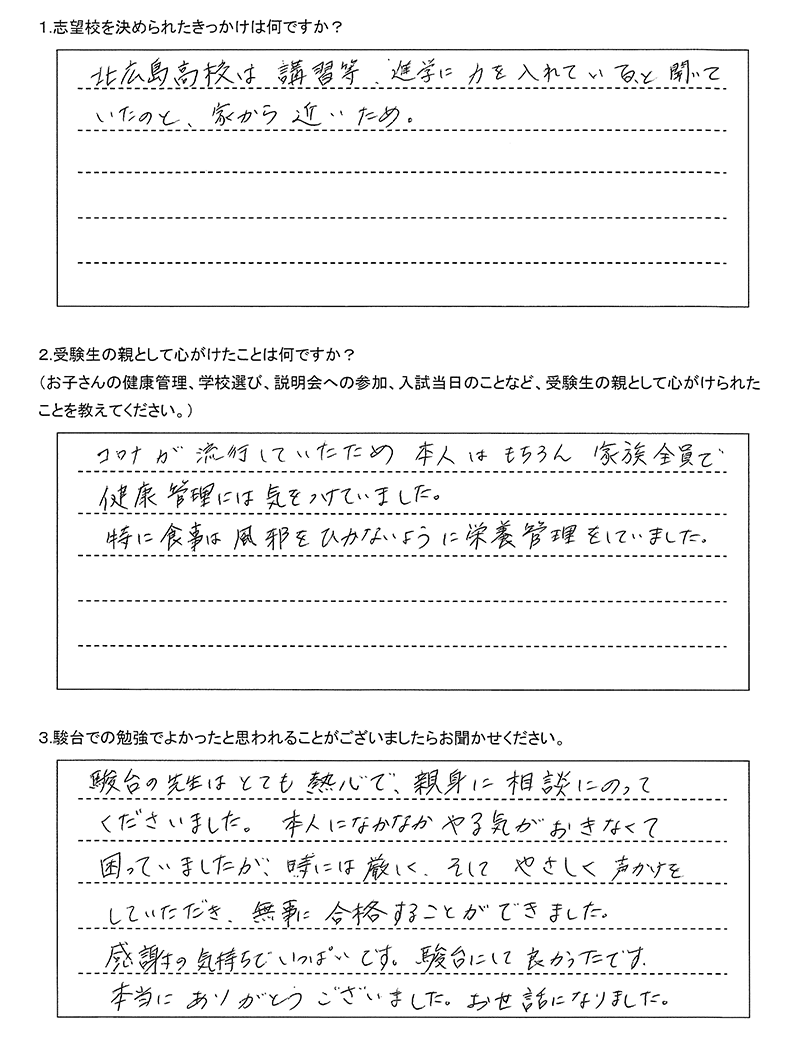 1.志望校を決められたきっかけは何ですか？
北広島高校は 講習等、進学に 力を 入れている、と 聞いて
いたのと、家から 近いため。
2.受験生の親として心がけたことは何ですか？
（お子さんの健康管理、学校選び、説明会への参加、入試当日のことなど、受験生の親として心がけられた
ことを教えてください。）
コロナが 流行していたため 本人は もちろん 家族全員で
健康管理には気をつけていました。
特に食事は風邪をひかないように栄養管理をしていました。
3.駿台での勉強でよかったと思われることがございましたらお聞かせください。
駿台の先生は とても 熱心で、親身に 相談にのって
くださいました。 本人になかなか やる気が おきなくて
困っていましたが、時には 厳しく、そして やさしく 声かけを
していただき、無事に 合格することができました。
感謝の気持ちでいっぱいです。駿台にして 良かったです.
本当に ありがとう ございました。お世話になりました。